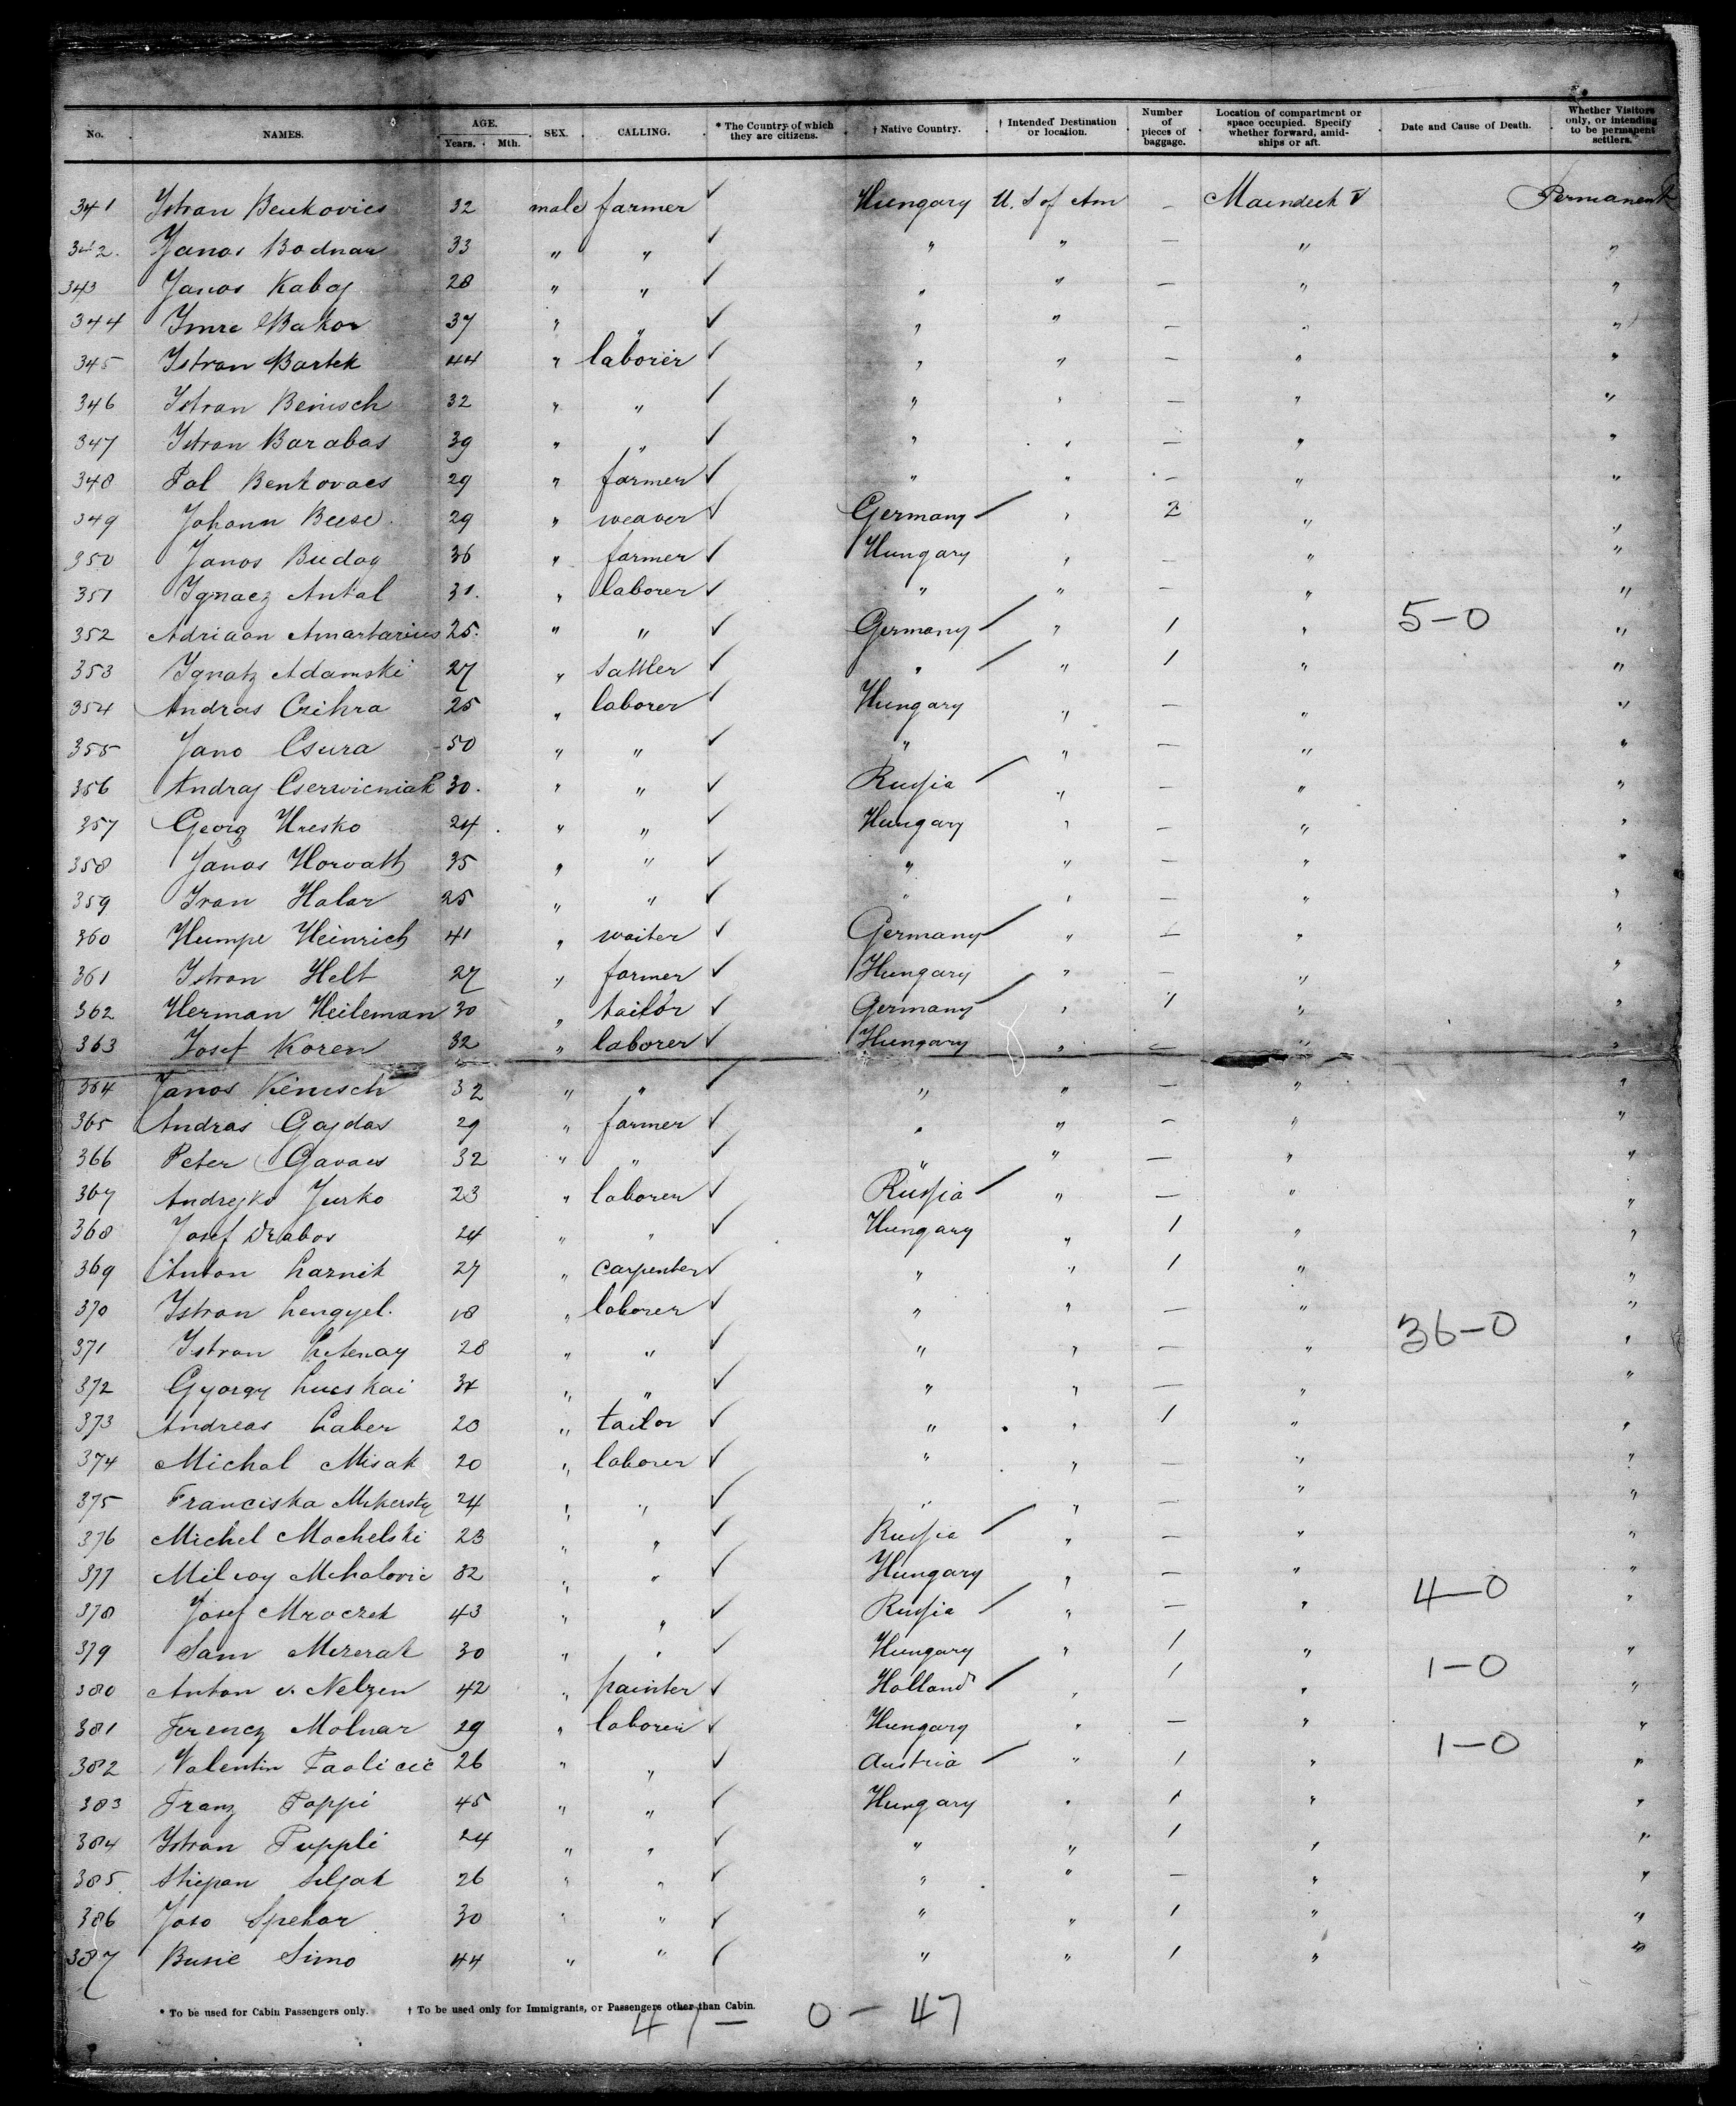 No. NAMES. AGE. Years. Mth. SEX. CALLING. * The Country of which they are citizens. † Native Country. † Intended Destination or location. Number of pieces of baggage. Location of compartment or space occupied. Specify whether forward, amidships or aft. Date and Cause of Death. Whether Visitors only, or intending to be permanent settlers.
341 Istvan Benkovics 32 male farmer ✓ Hungary U. S of Am — Maindeck V Permanent
342. Janos Bodnar 33 " " ✓ " " — " "
343 Janos Kabaj 28 " " ✓ " " — " "
344 Imre Bakor 37 " " ✓ " " — " "
345 Istvan Bartek 44 " laborer ✓ " " — " "
346 Istvan Benisch 32 " " ✓ " " — " "
347 Istvan Barabas 39 " " ✓ " " — " "
348 Pal Benkovacs 29 " farmer ✓ " " — " "
349 Johann Beese. 29 " weaver ✓ Germany / " 2 " "
350 Janos Buday 36 " farmer ✓ Hungary " — " "
351 Ignacz Antal 31. " laborer ✓ " " — " "
352 Adriaan Amartarius 25. " " ✓ Germany / " 1 " 5-0 "
353 Ignatz Adamski 27 " sattler ✓ " / " 1 " "
354 Andras Czihra 25 " laborer ✓ Hungary " — " "
355 Jano Csura 50 " " ✓ " " — " "
356 Andraj Cserwicniak 30. " " ✓ Russia / " — " "
357 Georg Hresko 24 " " ✓ Hungary " — " "
358 Janos Horvath 35 " " ✓ " " — " "
359 Ivan Halar 25 " " ✓ " " — " "
360 Humpe Heinrich 41 " waiter ✓ Germany / " — " "
361 Istvan Helt 27 " farmer ✓ Hungary " — " "
362 Herman Heileman 30 " tailor ✓ Germany / " 1 " "
363 Josef Koren 32 " laborer ✓ Hungary " — " "
364 Janos Kenisch 32 " " ✓ " " — " "
365 Andras Gajdas 29 " farmer ✓ " " — " "
366 Peter Gavacs 32 " " ✓ " " — " "
367 Andrejko Jurko 23 " laborer ✓ Russia / " — " "
368 Josef Drabos 24 " " ✓ Hungary " 1 " "
369 Anton Laznik 27 " carpenter ✓ " " 1 " "
370 Istvan Lengyel. 18 " laborer ✓ " " — " "
371 Istvan Letenay 28 " " ✓ " " — " 36-0 "
372 Gyorgy Lucskai " " ✓ " " — " "
373 Andreas Laber 20 " tailor ✓ " " 1 " "
374 Michal Misak 20 " laborer ✓ " " — " "
375 Franciska 24 " " ✓ " " — " "
376 Michel Mochelski 23 " " ✓ Russia / " — " "
377 Mihalovic 32 " " ✓ Hungary " — " "
378 Josef Mroczek 43 " " ✓ Russia / " — " 4-0 "
379 Sam Mezerak 30 " " ✓ Hungary " 1 " "
380 Anton v. Nelzen 42 " painter ✓ Holland / " 1 " 1-0 "
381 Ferencz Molnar 29 " laborer ✓ Hungary " — " "
382 Valentin Paolicic 26 " " ✓ Austria / " 1 " 1-0 "
383 Franz Poppi 45 " " ✓ Hungary " 1 " "
384 Istvan Puppli 24 " " ✓ " " 1 " "
385. Stiepan Siljak 26 " " ✓ " " — " "
386 Joso Spehar 30 " " ✓ " " 1 " "
387 Busic Simo 44 " " ✓ " " 1 " "
* To be used for Cabin Passengers only. † To be used only for Immigrants, or Passengers other than Cabin.
47 — 0 — 47